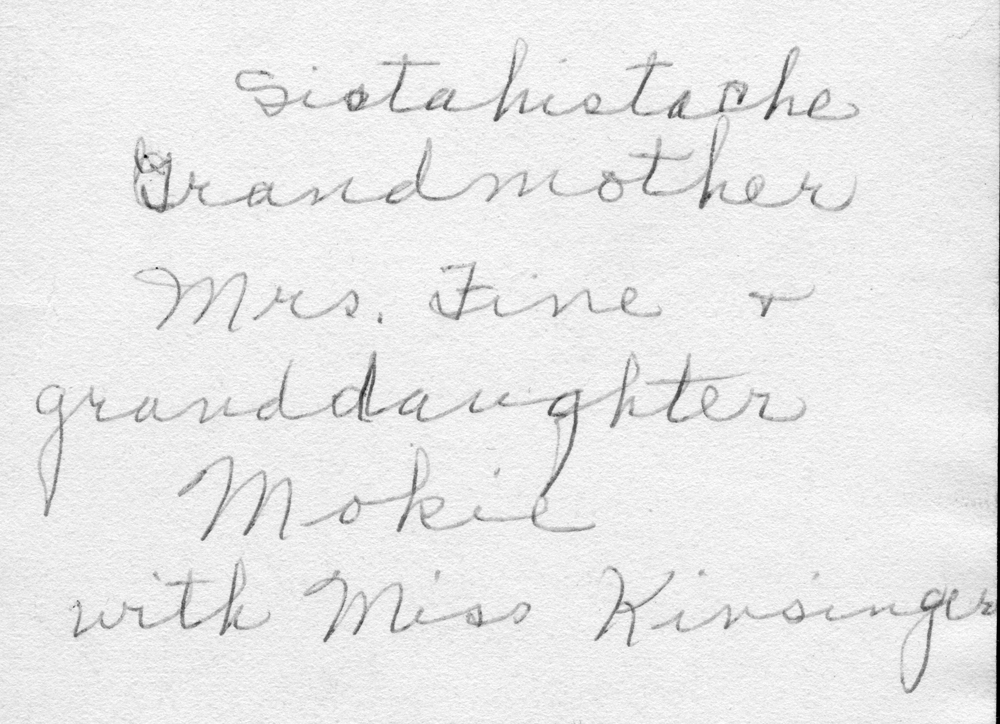 Sistahistache
Grandmother
Mrs. Fine &
granddaughter
Mokie
with Miss Kinsinger